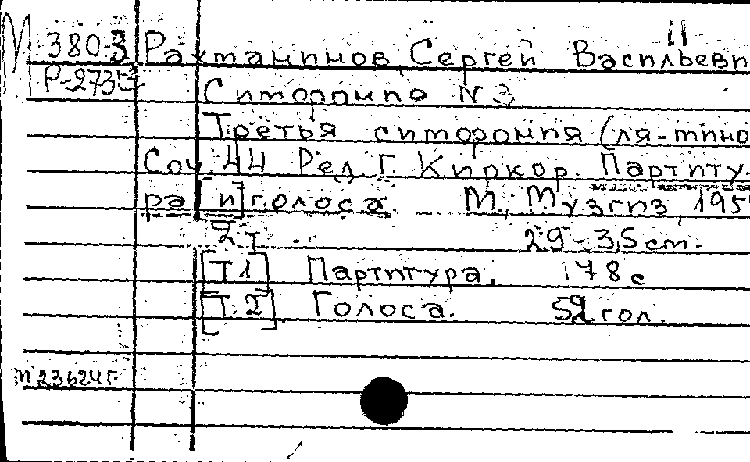 II
М 380-3 Рахманинов, Сергей Васильеви
Р-273 Симфония N 3
Третья симфония (ля-мино
Соч. 44 Ред. Г. Киркор. Партиту-
ра [и] голоса. М., Музгиз, 195
2 т. 29-3,5 cm.
[Т 1] Партитура. 178 с
[Т. 2]. Голоса. 52 гол.